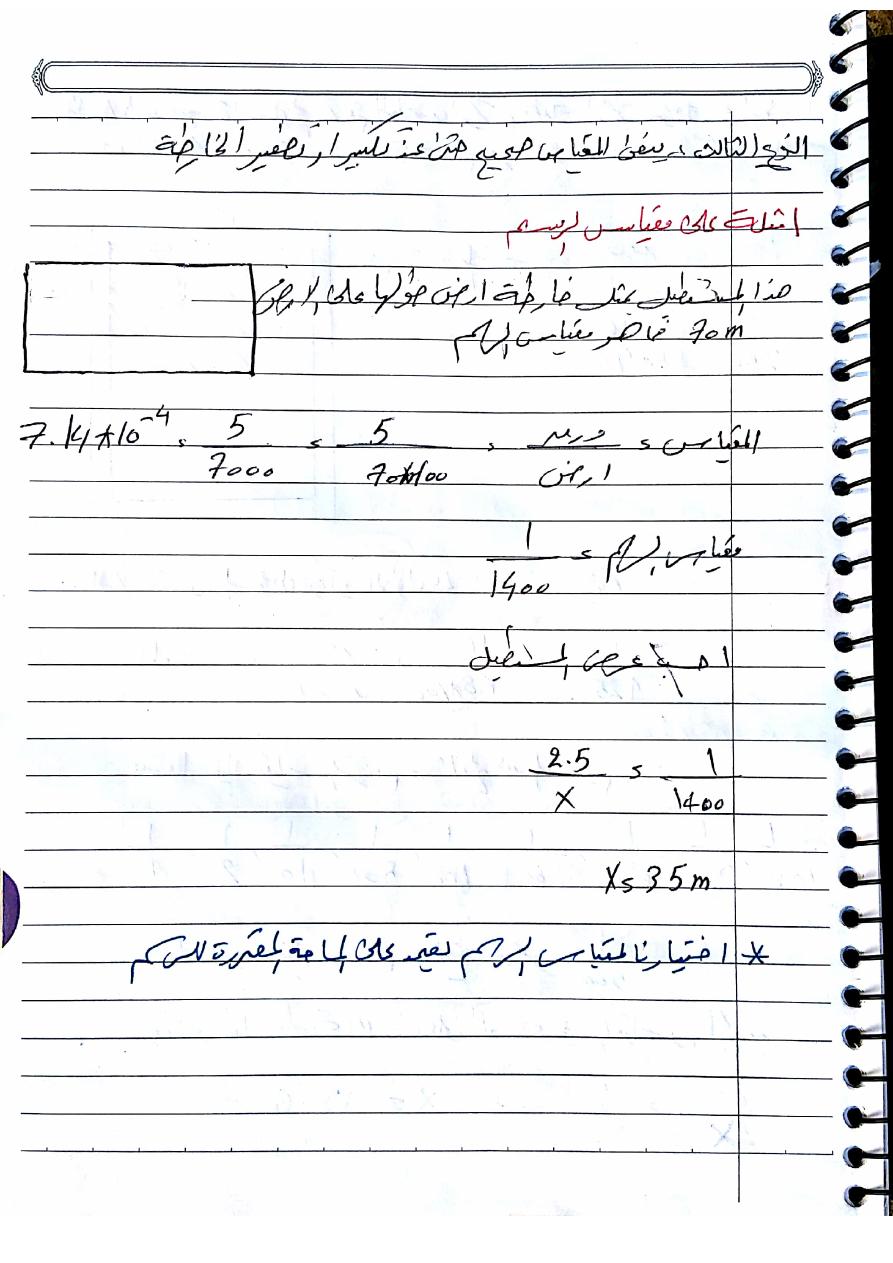 النوع الثالث : يبقى المقياس صحيح حتى عند تكبير او تصغير الخارطة
امثلة على مقياس الرسم
هذا المستطيل يمثل خارطة ارض طولها على الارض
70m فما هو مقياس الرسم
المقياس = ورقة / ارض = 5 / 70*100 = 5 / 7000 = 7.14*10^-4
مقياس الرسم = 1 / 1400
احسب عرض المستطيل
1 / 1400 = 2.5 / X
X = 35m
* اختيارنا لمقياس الرسم يعتمد على المساحة المقررة للرسم